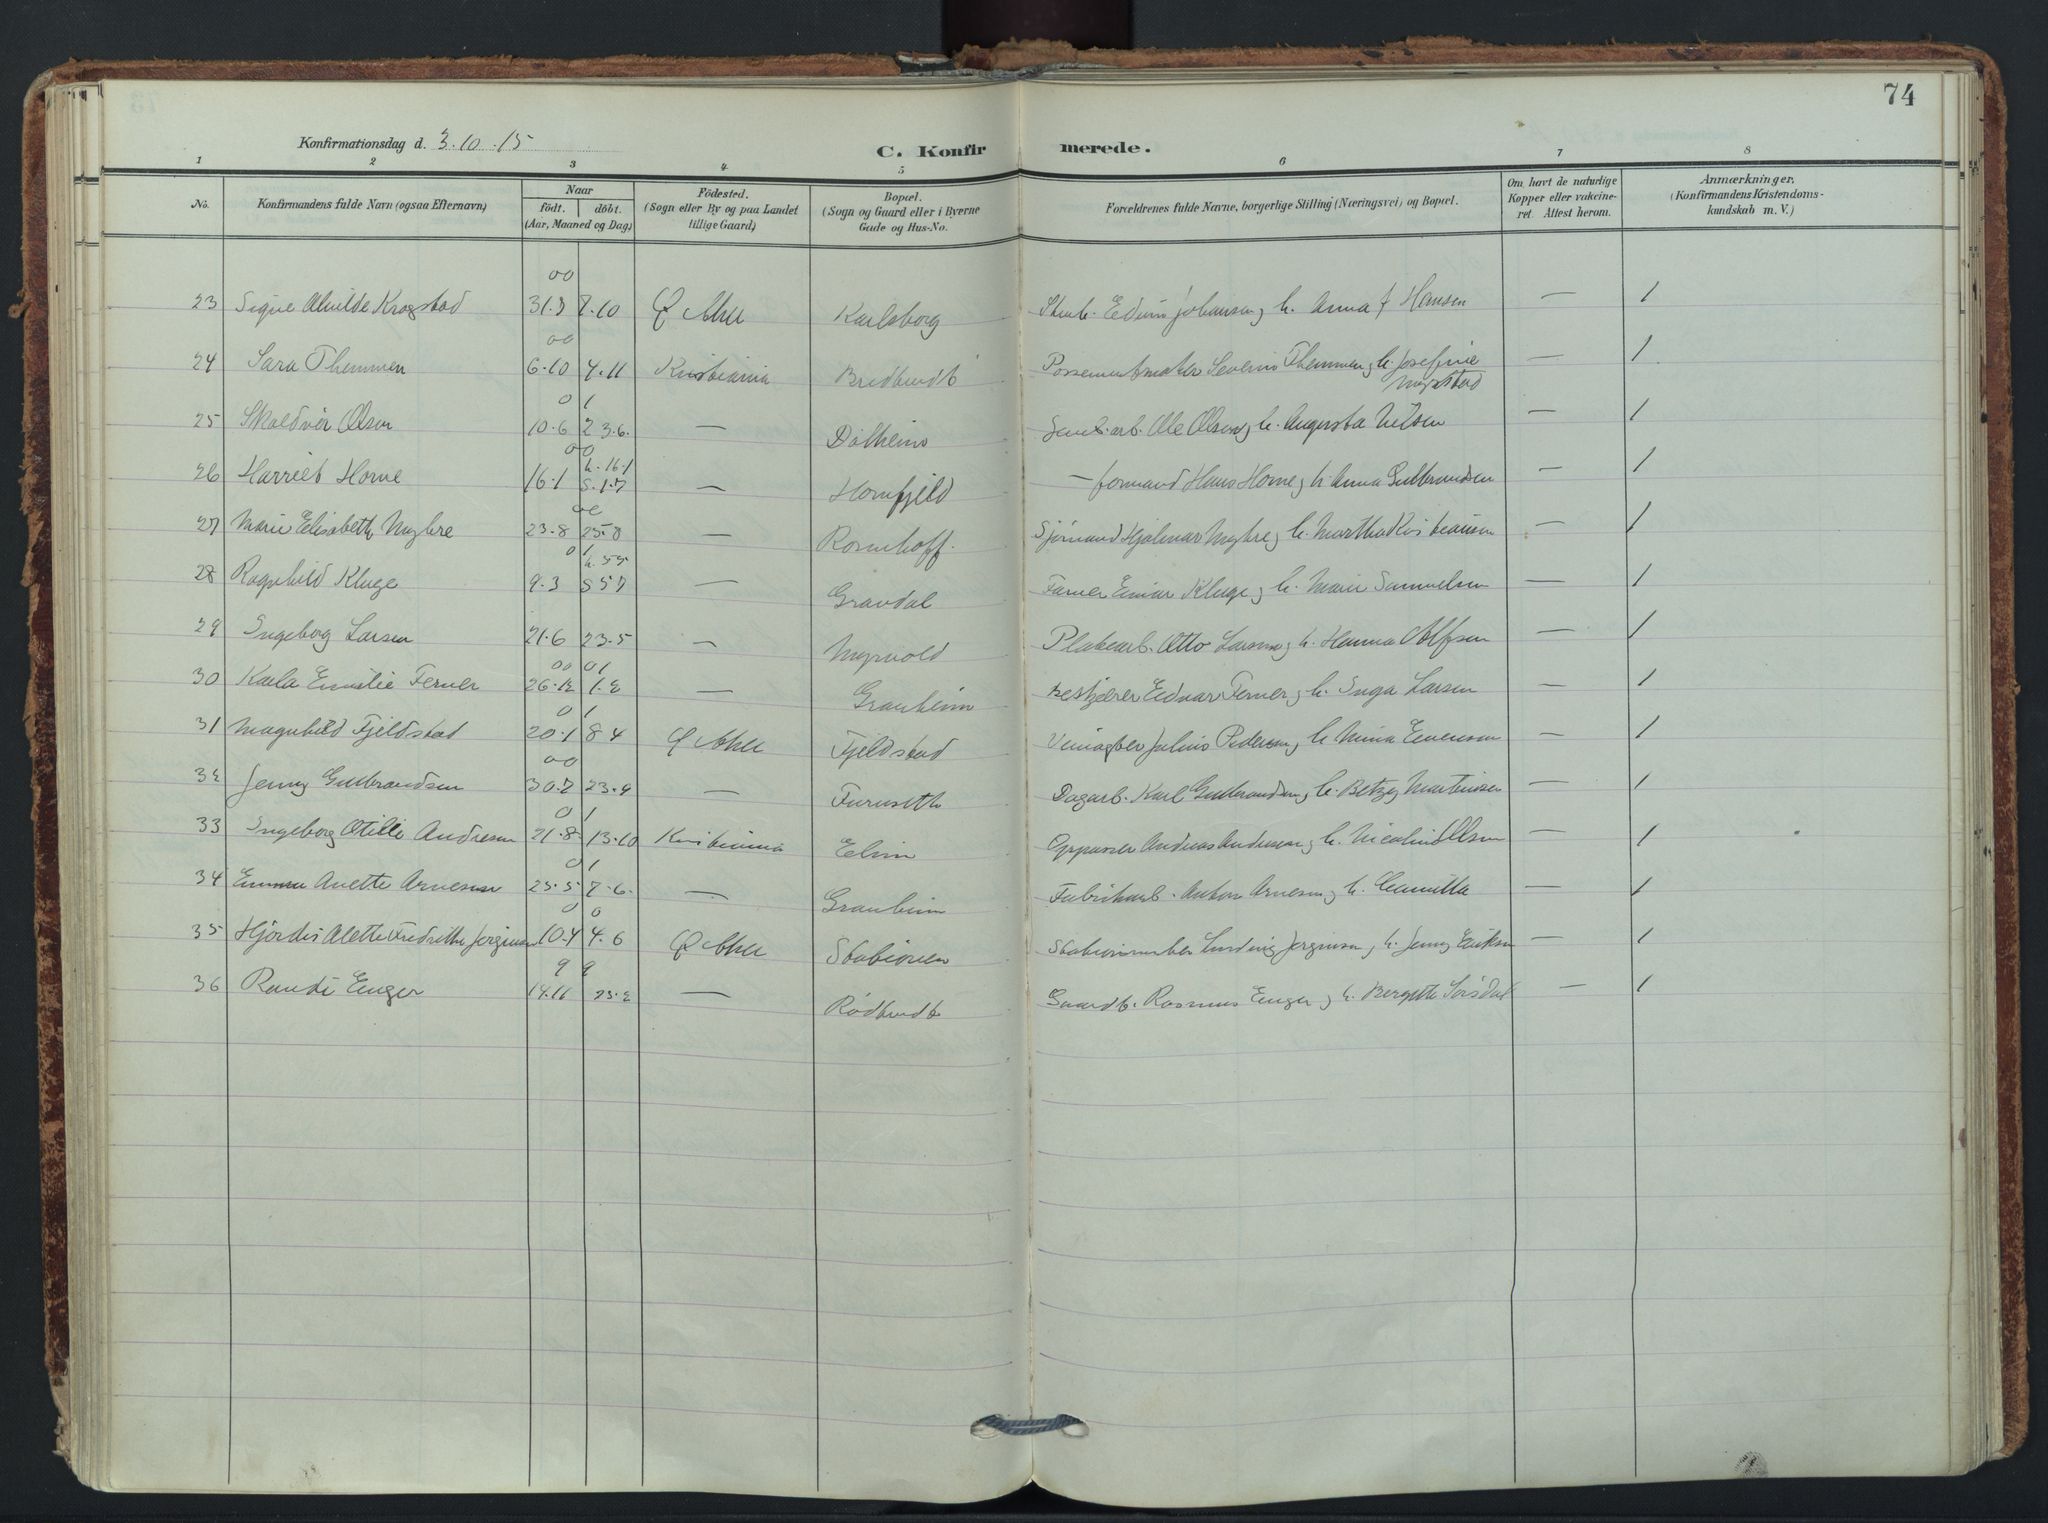 74
Konfirmationsdag d. 3.10.15
C. Konfirmerede.
1 2 3 4 5 6 7 8
No.
Konfirmandens fulde Navn (ogsaa Efternavn)
Naar
födt. döbt.
(Aar, Maaned og Dag)
Födested.
(Sogn eller By og paa Landet
tillige Gaard)
Bopæl.
(Sogn og Gaard eller i Byerne
Gade og Hus-No.
Forældrenes fulde Navne, borgerlige Stilling (Næringsvei) og Bopæl.
Om havt de naturlige
Kopper eller vakcine-
ret. Attest herom.
Anmærkninger.
(Konfirmandens Kristendoms-
kundskab m. V.)
00
23 Signe Alvilde Krogstad 7.10 Ø Aker Karlsborg Edvin Johansen, h. Anna f Hansen — 1
00
24 Sara Themmen 6.10 4.11 Kristiania Bredtvedt Possementmaker Severin Themmen, h. Josefine — 1
Mystad
0 1
25 Olsen 10.6 23.6. — Dalheim Ole Olsen, h. Augusta Nilsen — 1
00
h. 16.1
26 Harriet Horne 16.1 S. 1.7 — Hornfjeld — formand Hans Horne, h. Anna Gulbrandsen — 1
27 Marie Elisabeth Myhre 23.8 25.8 — Rosenhoff. Sjømand Hjalmar Myhre, h. Martha Kristiansen — 1
0 1
h. 5.5
28 Ragnhild Kluge 9.3 S 5.7 — Gravdal Farver Einar Kluge, h. Marie Samuelsen — 1
29 Ingeborg Larsen 21.6 23.5 — Myrvold Otto Larsen, h. Hanna Adolfsen — 1
00 01
30 Karla Emilie Ferner 26.12 1.2 — Granheim Feskjærer Edvar Ferner, h. Inga Larsen — 1
0 1
31 Magnhild Fjeldstad 20.1 8 4 Ø Aker Fjeldstad Julius Pedersen, h. Mina Evensen — 1
00
32 Jenny Gulbrandsen 30.7 23.9 — Furuseth Dagarb. Karl Gulbrandsen, h. Betzy Martinsen — 1
0 1
33 Ingeborg Otilie Andresen 21.8 13.10 Kristiania Elim Oppasser Andreas Andresen, h. Nicoline Olsen — 1
0 1
34 Emma Anette Arnesen 25.5 7.6. — Granheim Fabrikarb. Anton Arnesen, h. Camilla — 1
0 0
35 Hjördis Alette Fredrikke Jørginsen 10.4 4.6 Ø Aker Stationen Ludvig Jørginsen, h. Jenny Eriksen — 1
9 9
36 Randi Enger 14.11 23.2 — Rödtvedt Gaardb. Rasmus Enger, h. Bergithe Sörsdal — 1